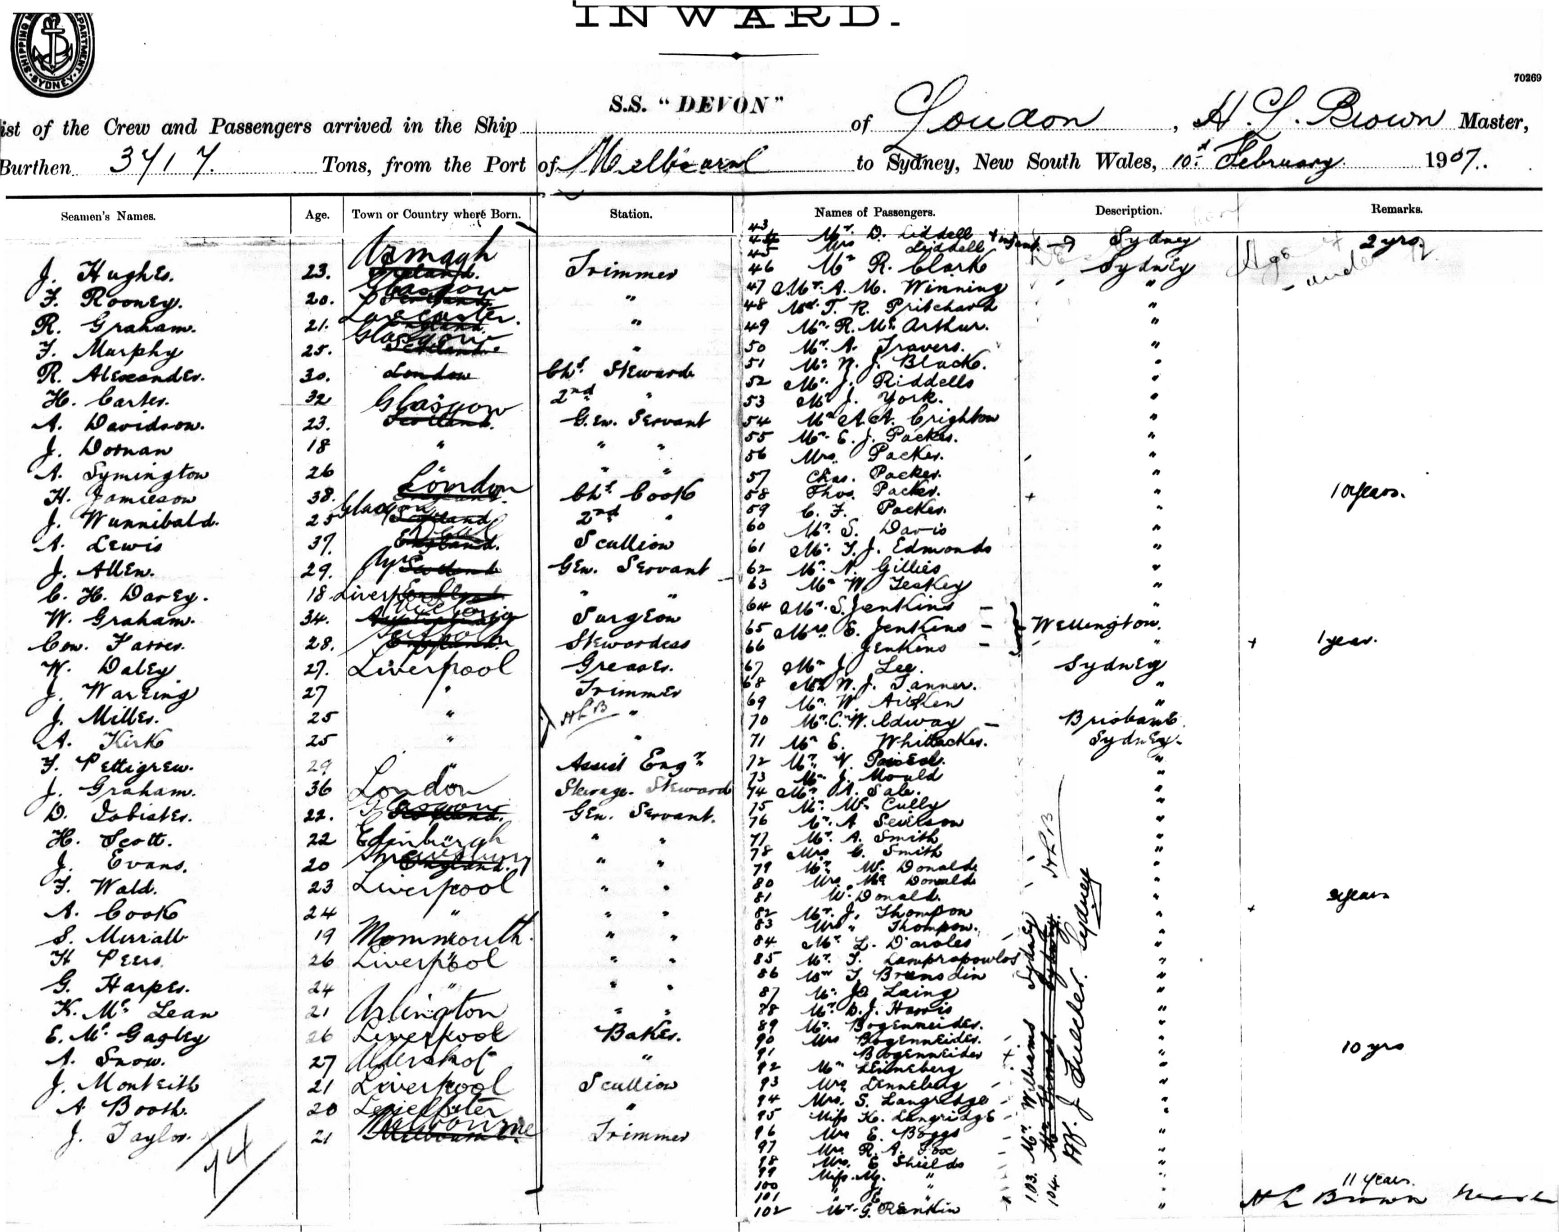 INWARD.
SHIPPING
SYDNEY.
70269
S.S. "DEVON"
ist of the Crew and Passengers arrived in the Ship of London, H. L. Brown Master,
Burthen 3717. Tons, from the Port of Melbourne to Sydney, New South Wales, 10th February 1907.
Seamen's Names. Age. Town or Country where Born. Station. Names of Passengers. Description. Remarks.
J. Hughes. 23. Armagh Ireland. Trimmer
F. Rooney. 20. Glasgow Scotland "
R. Graham. 21. Lancaster. England. "
F. Murphy 25. Glasgow Scotland. "
R. Alexander. 30. London Chf. Steward
H. Carter. 32 2nd "
A. Davidson. 23. Glasgow Scotland. Gen. Servant
J. Dornan 18 " " "
A. Symington 26 " "
H. Jamieson 38. London England. Chf. Cook
J. Wunnibald. 25 Glasgow Scotland 2nd "
A. Lewis 37. England. Scullion
J. Allen. 29. Ayr Scotland Gen. Servant
C. H. Davey. 18 Liverpool " "
W. Graham. 34. Victoria Surgeon
Con. Farres. 28. England. Stewardess
W. Daley 27. Liverpool Greaser.
J. Wareing 27 " Trimmer
J. Miller. 25 " HLB "
A. Kirk 25 " "
F. Pettigrew. 29 " Assist Engr
J. Graham. 36 London Steerage. Steward
D. Isbister. 22. Glasgow Scotland. Gen. Servant.
H. Scott. 22 Edinburgh " "
J. Evans. 20 Shrewsbury England. " "
F. Wald. 23 Liverpool " "
A. Cook 24 " " "
S. Murrall 19 Monmouth. " "
H. Peers. 26 Liverpool " "
G. Harper. 24 " " "
K. Mc Lean 21 Arlington " "
E. Mc Gagley 26 Liverpool Baker.
A. Snow. 27 Aldershot "
J. Monteith 21 Liverpool Scullion
A Booth. 20 Leicester "
J. Taylor. 21 Melbourne Melbourne. Trimmer
74
43 Mr. D. Liddell Sydney
44 Mrs Liddell + infant 2 yrs.
45
46 Mr R. Clark Sydney
47 Mr. A. M. Winning "
48 Mr. T. R. Pritchard "
49 Mr. R. Mc Arthur. "
50 Mr. A. Travers. "
51 Mr. N. J. Black. "
52 Mr. J. Riddells "
53 Mr J. York. "
54 Mr A. A. Crighton "
55 Mr. E. J. Packer. "
56 Mrs. Packer. "
57 Chas. Packer. "
58 Thos. Packer. " 10 years.
59 C. F. Packer. "
60 Mr. S. Davis "
61 Mr. F. J. Edmonds "
62 Mr. N. Gillies "
63 Mr W. Teskey "
64 Mr. S. Jenkins "
65 Mrs. E. Jenkins Wellington.
66 Jenkins " 1 year.
67 Mr J. Lee. Sydney
68 Mr W. J. Tanner. "
69 Mr. W. Aitken "
70 Mr. C. W. Edway Brisbane.
71 Mr E. Whittacker. Sydney.
72 Mr. V. "
73 Mr. J. Mould "
74 Mr. A. Sale. "
75 Mr. W. Cully "
76 Mr. A "
77 Mr. A. Smith "
78 Mrs C. Smith "
79 Mr. W. Donald "
80 Mrs Mc Donald "
81 W. Donald. " years
82 Mr. J. Thompson "
83 Mrs " Thompson. "
84 Mr. L. D'aroles "
85 Mr. F. Lampropowlos "
86 Mr F. Brunsdin "
87 Mr. Jo Laing "
88 Mr. D. J. Harris "
89 Mr. Bogenneider. "
90 Mrs Bogenneider. "
91 Bogenneider " 10 yrs
92 Mr Lenneberg "
93 Mrs Lenneberg "
94 Mrs. S. Langridge "
95 Miss K. Langridge "
96 Mrs E. Boggs "
97 Mrs R. A. "
98 Mrs. E Shields "
99 Miss M. " "
100 " J. " "
101 " E. " " 11 years.
102 Mr. G. Rankin "
103. Mr Williams Sydney
104. Mr Thomas Sydney HLB
Mr. J. Fuller. Sydney
H L Brown Master